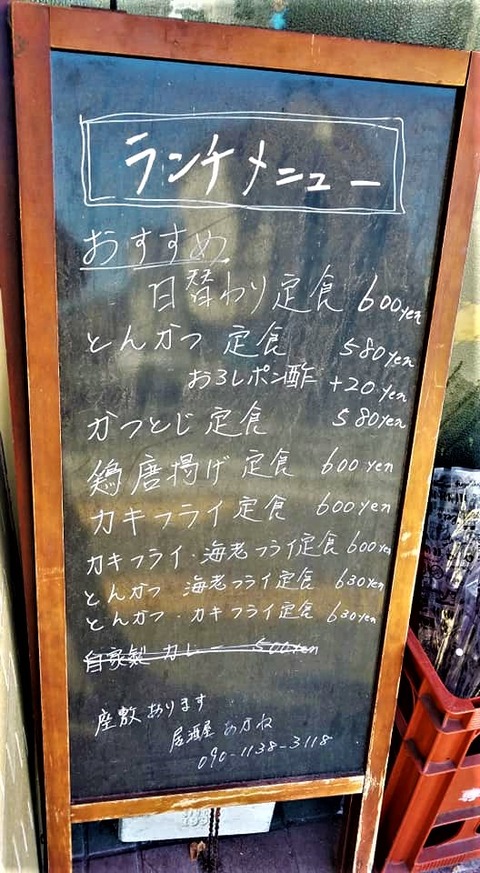 ランチメニュー
おすすめ
日替わり定食 600yen
とんかつ 定食 580yen
おろしポン酢 +20yen
かつとじ定食 580yen
鶏唐揚げ定食 600yen
カキフライ定食 600yen
カキフライ・海老フライ定食 600yen
とんかつ 海老フライ定食 630yen
とんかつ・カキフライ定食 630yen
自家製 カレー 500yen
座敷あります
居酒屋
090-1138-3118